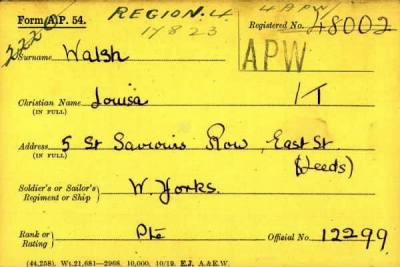 REGION. 4
4 APW
Form A.P. 54.
17823
Registered No. 48002
2220
Surname Walsh
APW
Christian Name Louisa
(IN FULL)
1T
Address 5 St Saviours Row, East St.
(IN FULL)
(Leeds)
Soldier's or Sailor's Regiment or Ship W. Yorks.
Rank or Rating Pte
Official No. 12299
(44,258). Wt.21,681—2968. 10,000. 10/19. E.J. A.&E.W.